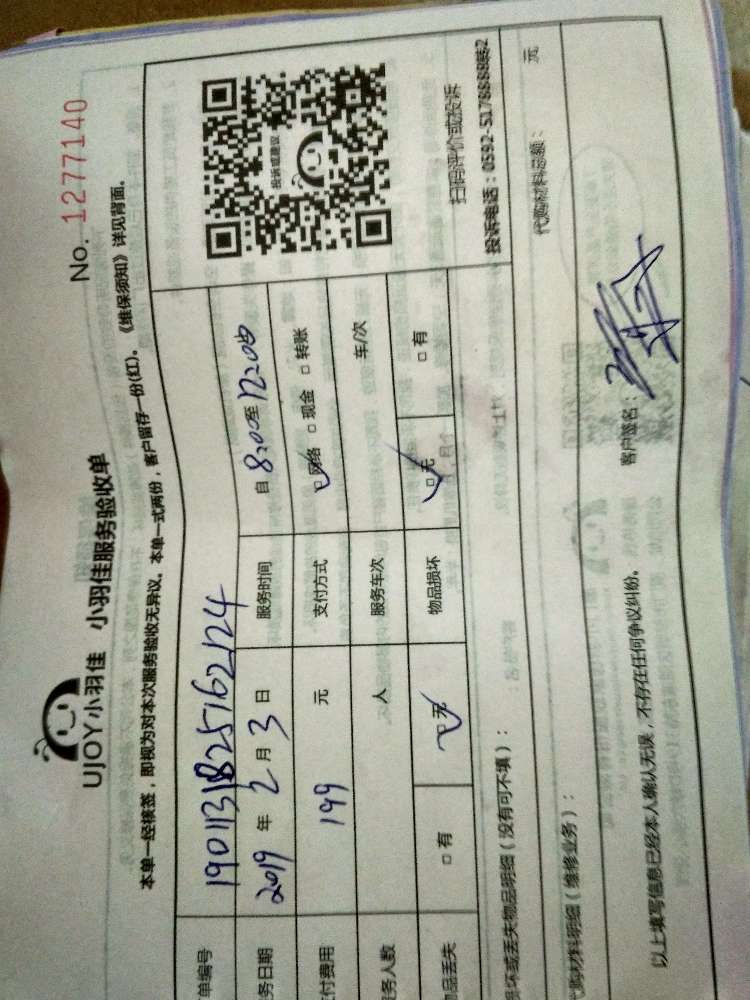 UJOY小羽佳 小羽佳服务验收单
No. 1277140
本单一经核签，即视为对本次服务验收无异议。本单一式两份，客户留存一份(红)。《维保须知》详见背面。
单编号 1901131825162124
务日期 2019 年 2 月 3 日 服务时间 自 8:00 至 12:00
付费用 199 元 支付方式 □网络 □现金 □转账
务人数 人 服务车次 车/次
品丢失 □有 □无 物品损坏 □无 □有
投诉或建议
扫码评价或投诉
投诉电话：0592-5178888转2
损坏或丢失物品明细（没有可不填）：
代购材料明细（维修业务）：
代购材料总额： 元
以上填写信息已经本人确认无误，不存在任何争议纠纷。
客户签名：